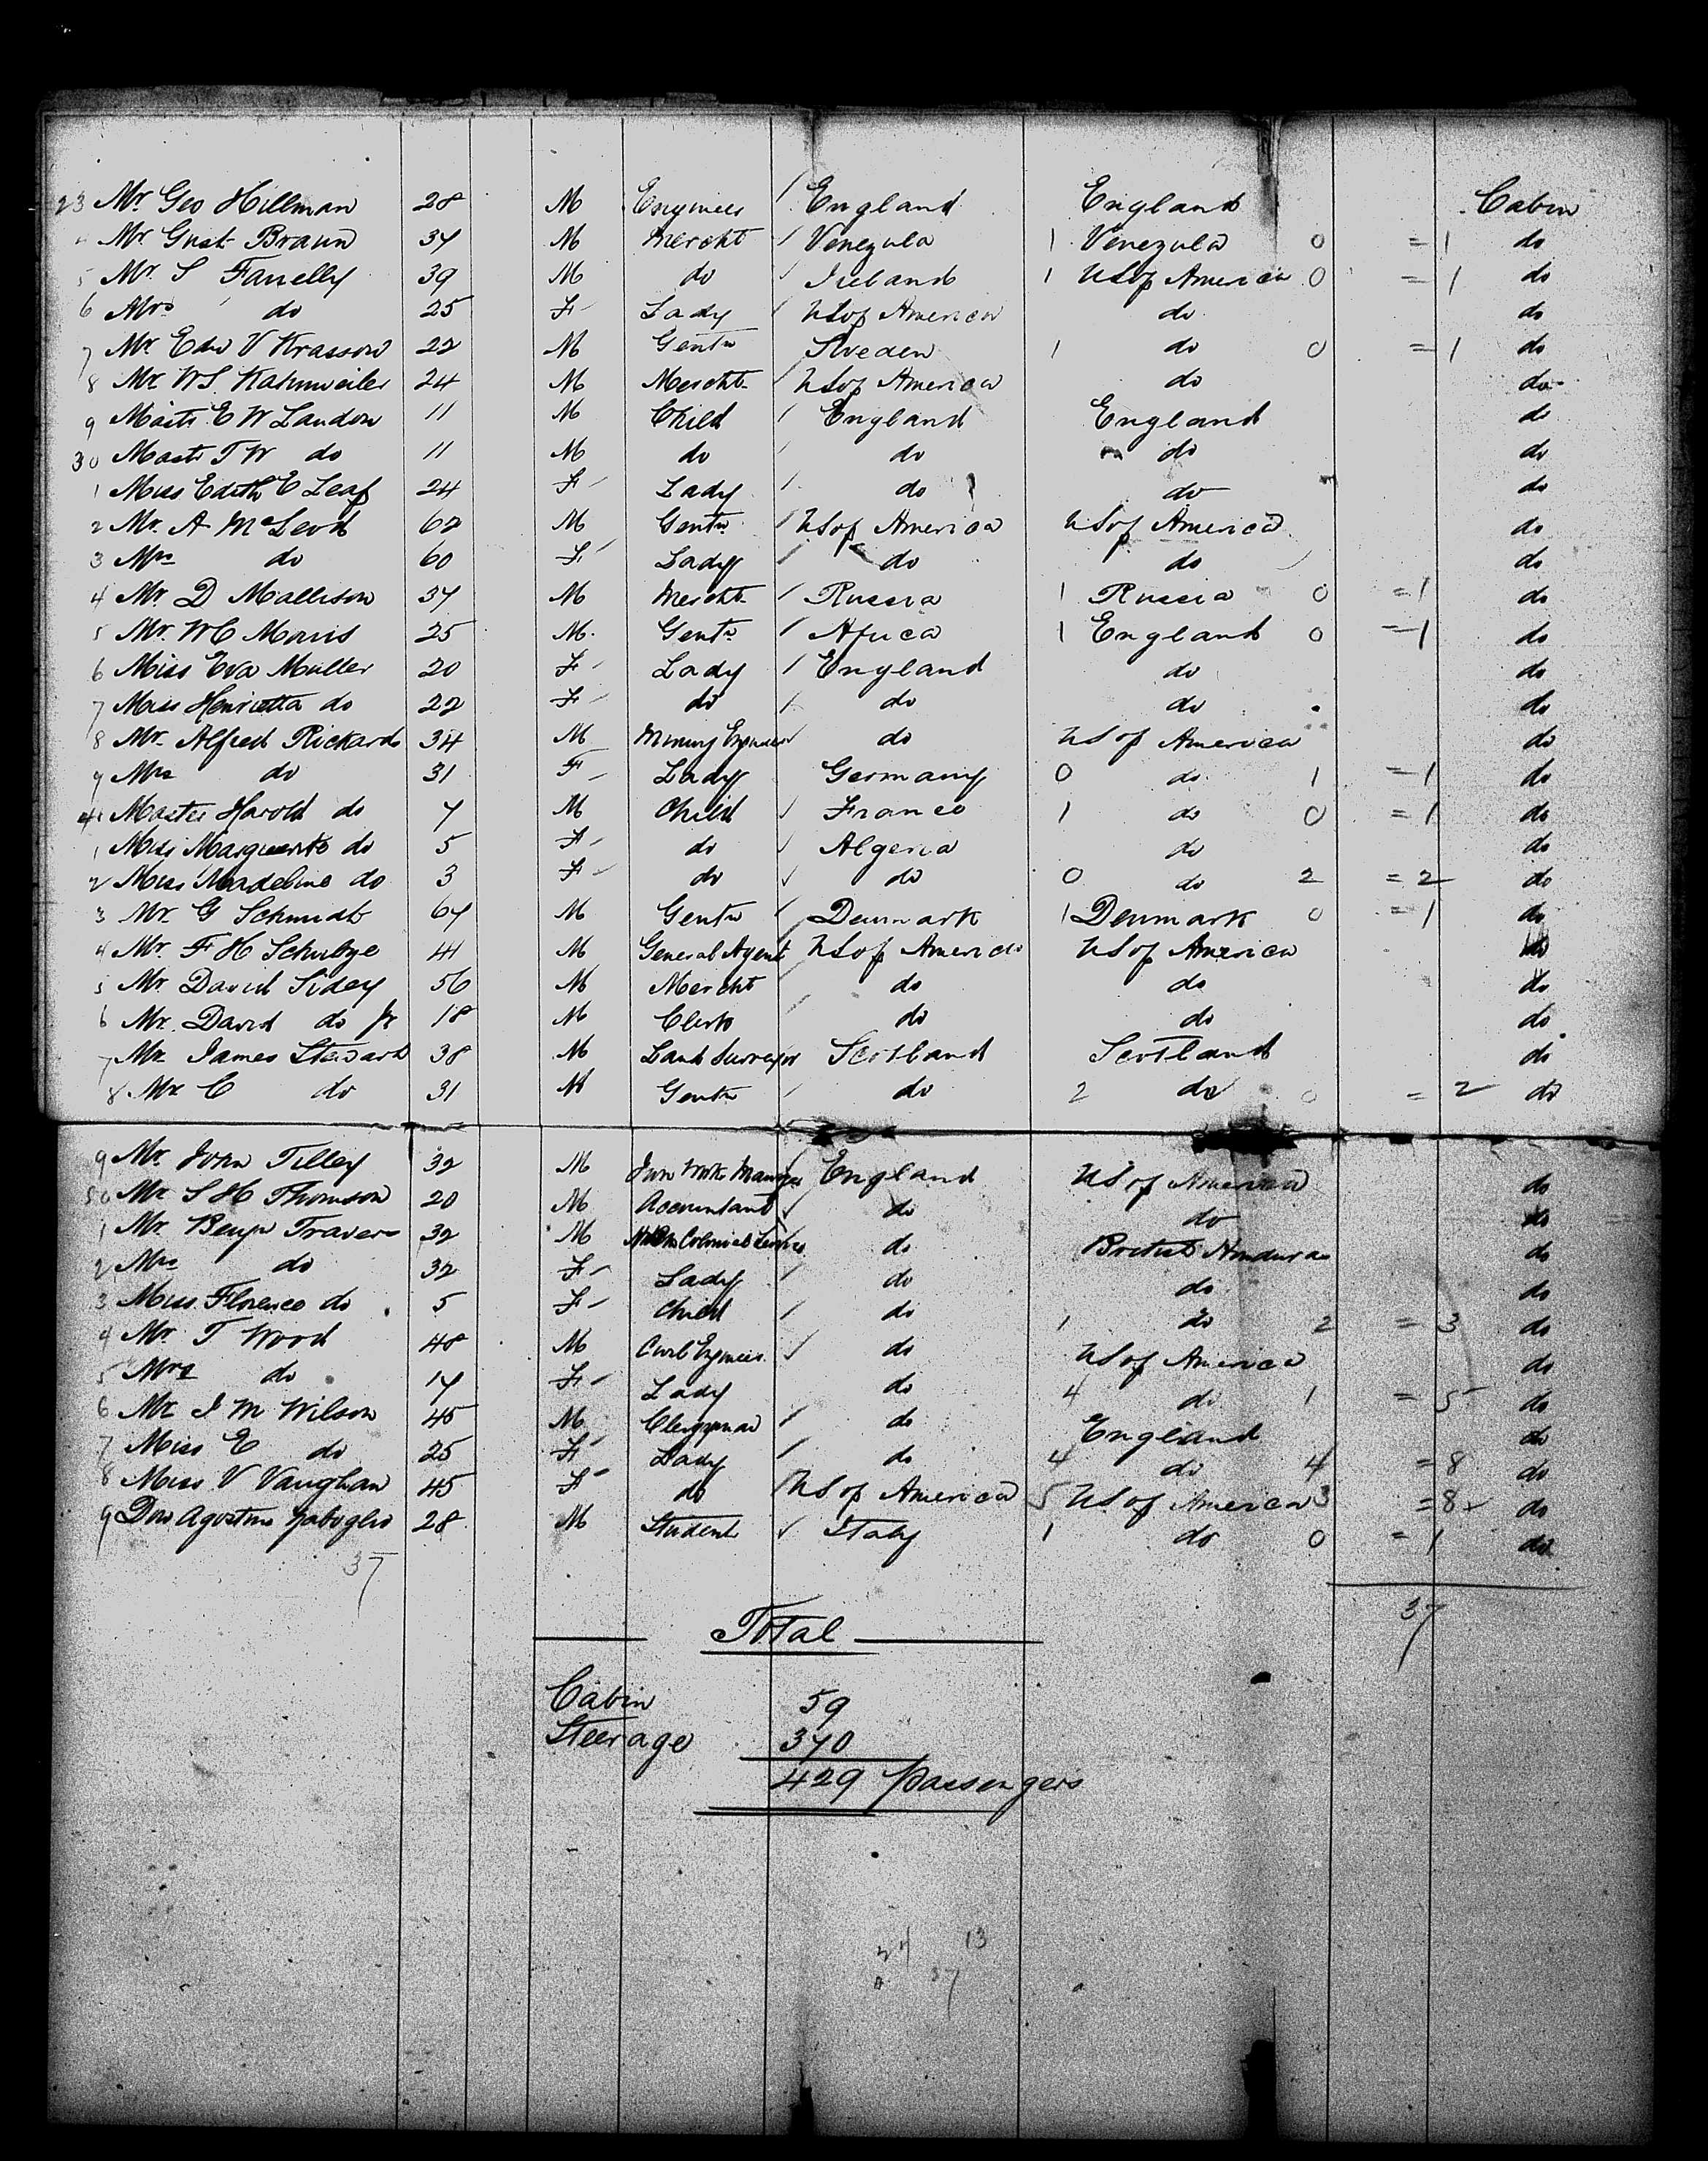 23 Mr. Geo Hillman 28 M Engineer England England Cabin
4 Mr Gust Braun 37 M Mercht Venezula 1 Venezula 0 = 1 do
5 Mr. S Farrelly 39 M do Ireland 1 US of America 0 = 1 do
6 Mrs do 25 F Lady US of America do do
7 Mr Edw V Krasson 22 M Gentn Sweden 1 do 0 = 1 do
8 Mr WS Kahnweiler 24 M Mercht US of America do do
9 Mastr E W Landon 11 M Child England England do
30 Mastr T W do 11 M do do do do
1 Miss Edith E Leaf 24 F Lady do do do
2 Mr. A McLeod 62 M Gentn US of America US of America do
3 Mrs do 60 F Lady do do do
4 Mr. D Mallison 37 M Mercht Russia 1 Russia 0 = 1 do
5 Mr. WC Morris 25 M Gentn Africa 1 England 0 = 1 do
6 Miss Eva Muller 20 F Lady England do do
7 Miss Henrietta do 22 F do do do do
8 Mr. Alfred Rickard 34 M Mining Engineer do US of America do
9 Mrs do 31 F Lady Germany 0 do 1 = 1 do
4 Master Harold do 7 M Child France 1 do 0 = 1 do
1 Miss Marguerite do 5 F do Algeria do do
2 Miss Madeline do 3 F do do 0 do 2 = 2 do
3 Mr. G Schmidt 67 M Gentn Denmark 1 Denmark 0 = 1 do
4 Mr. F H Schultze 41 M General Agent US of America US of America do
5 Mr David Sidey 56 M Mercht do do do
6 Mr. David do Jr 18 M Clerk do do do
7 Mr. James Stewart 38 M Land Surveyor Scotland Scotland do
8 Mr C do 31 M Gentn do 2 do 0 = 2 do
9 Mr. John Tilley 32 M Iron Wrks Manager England US of America do
50 Mr S H Thomson 20 M Accountant do do do
1 Mr. Benjn Travers 32 M Colonial Service do British Honduras do
2 Mrs do 32 F Lady do do do
3 Miss Florence do 5 F Child do 1 do 2 = 3 do
4 Mr T Wood 48 M Civil Engineer do US of America do
5 Mrs do 17 F Lady do 4 do 1 = 5 do
6 Mr J M Wilson 45 M Clergyman do England do
7 Miss E do 25 F Lady do 4 do 4 = 8 do
8 Miss V Vaughan 45 F do US of America 5 US of America 3 = 8 do
9 Don Agostino 28 M Student Italy 1 do 0 = 1 do
37
37
Total
Cabin 59
Steerage 370
429 Passengers
24 13
37